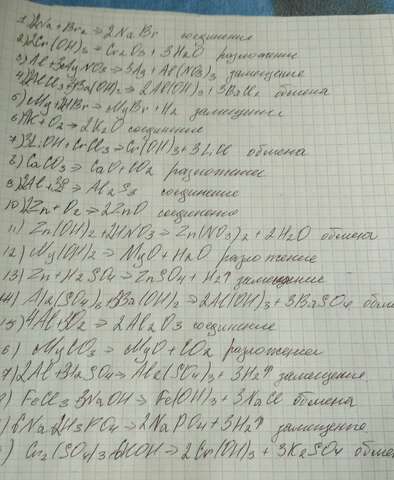 1) 2Na + Br2 => 2NaBr соединение
2) 2Cr(OH)3 => Cr2O3 + 3H2O разложение
3) Al + 3AgNO3 => 3Ag + Al(NO3)3 замещение
4) 2AlCl3 + 3Ba(OH)2 => 2Al(OH)3 + 3BaCl2 обмена
5) Mg + 2HBr => MgBr + H2 замещение
+ O2 => 2K2O соединение
7) 3LiOH + CrCl3 => Cr(OH)3 + 3LiCl обмена
8) CaCO3 => CaO + CO2 разложение
9) 2Al + 3S => Al2S3 соединение
10) 2Zn + O2 => 2ZnO соединение
11) Zn(OH)2 + 2HNO3 => Zn(NO3)2 + 2H2O обмена
12) Mg(OH)2 => MgO + H2O разложение
13) Zn + H2SO4 => ZnSO4 + H2↑ замещение
14) Al2(SO4)3 + 3Ba(OH)2 => 2Al(OH)3 + 3BaSO4 обм
15) 4Al + 3O2 => 2Al2O3 соединение
6) MgCO3 => MgO + CO2 разложение
7) 2Al + 3H2SO4 => Al2(SO4)3 + 3H2↑ замещение
) FeCl3 + 3NaOH => Fe(OH)3 + 3NaCl обмена
) 6Na + 2H3PO4 => 2NaPO4 + 3H2↑ замещение
) Cr2(SO4)3 + 6KOH => 2Cr(OH)3 + 3K2SO4 обмен